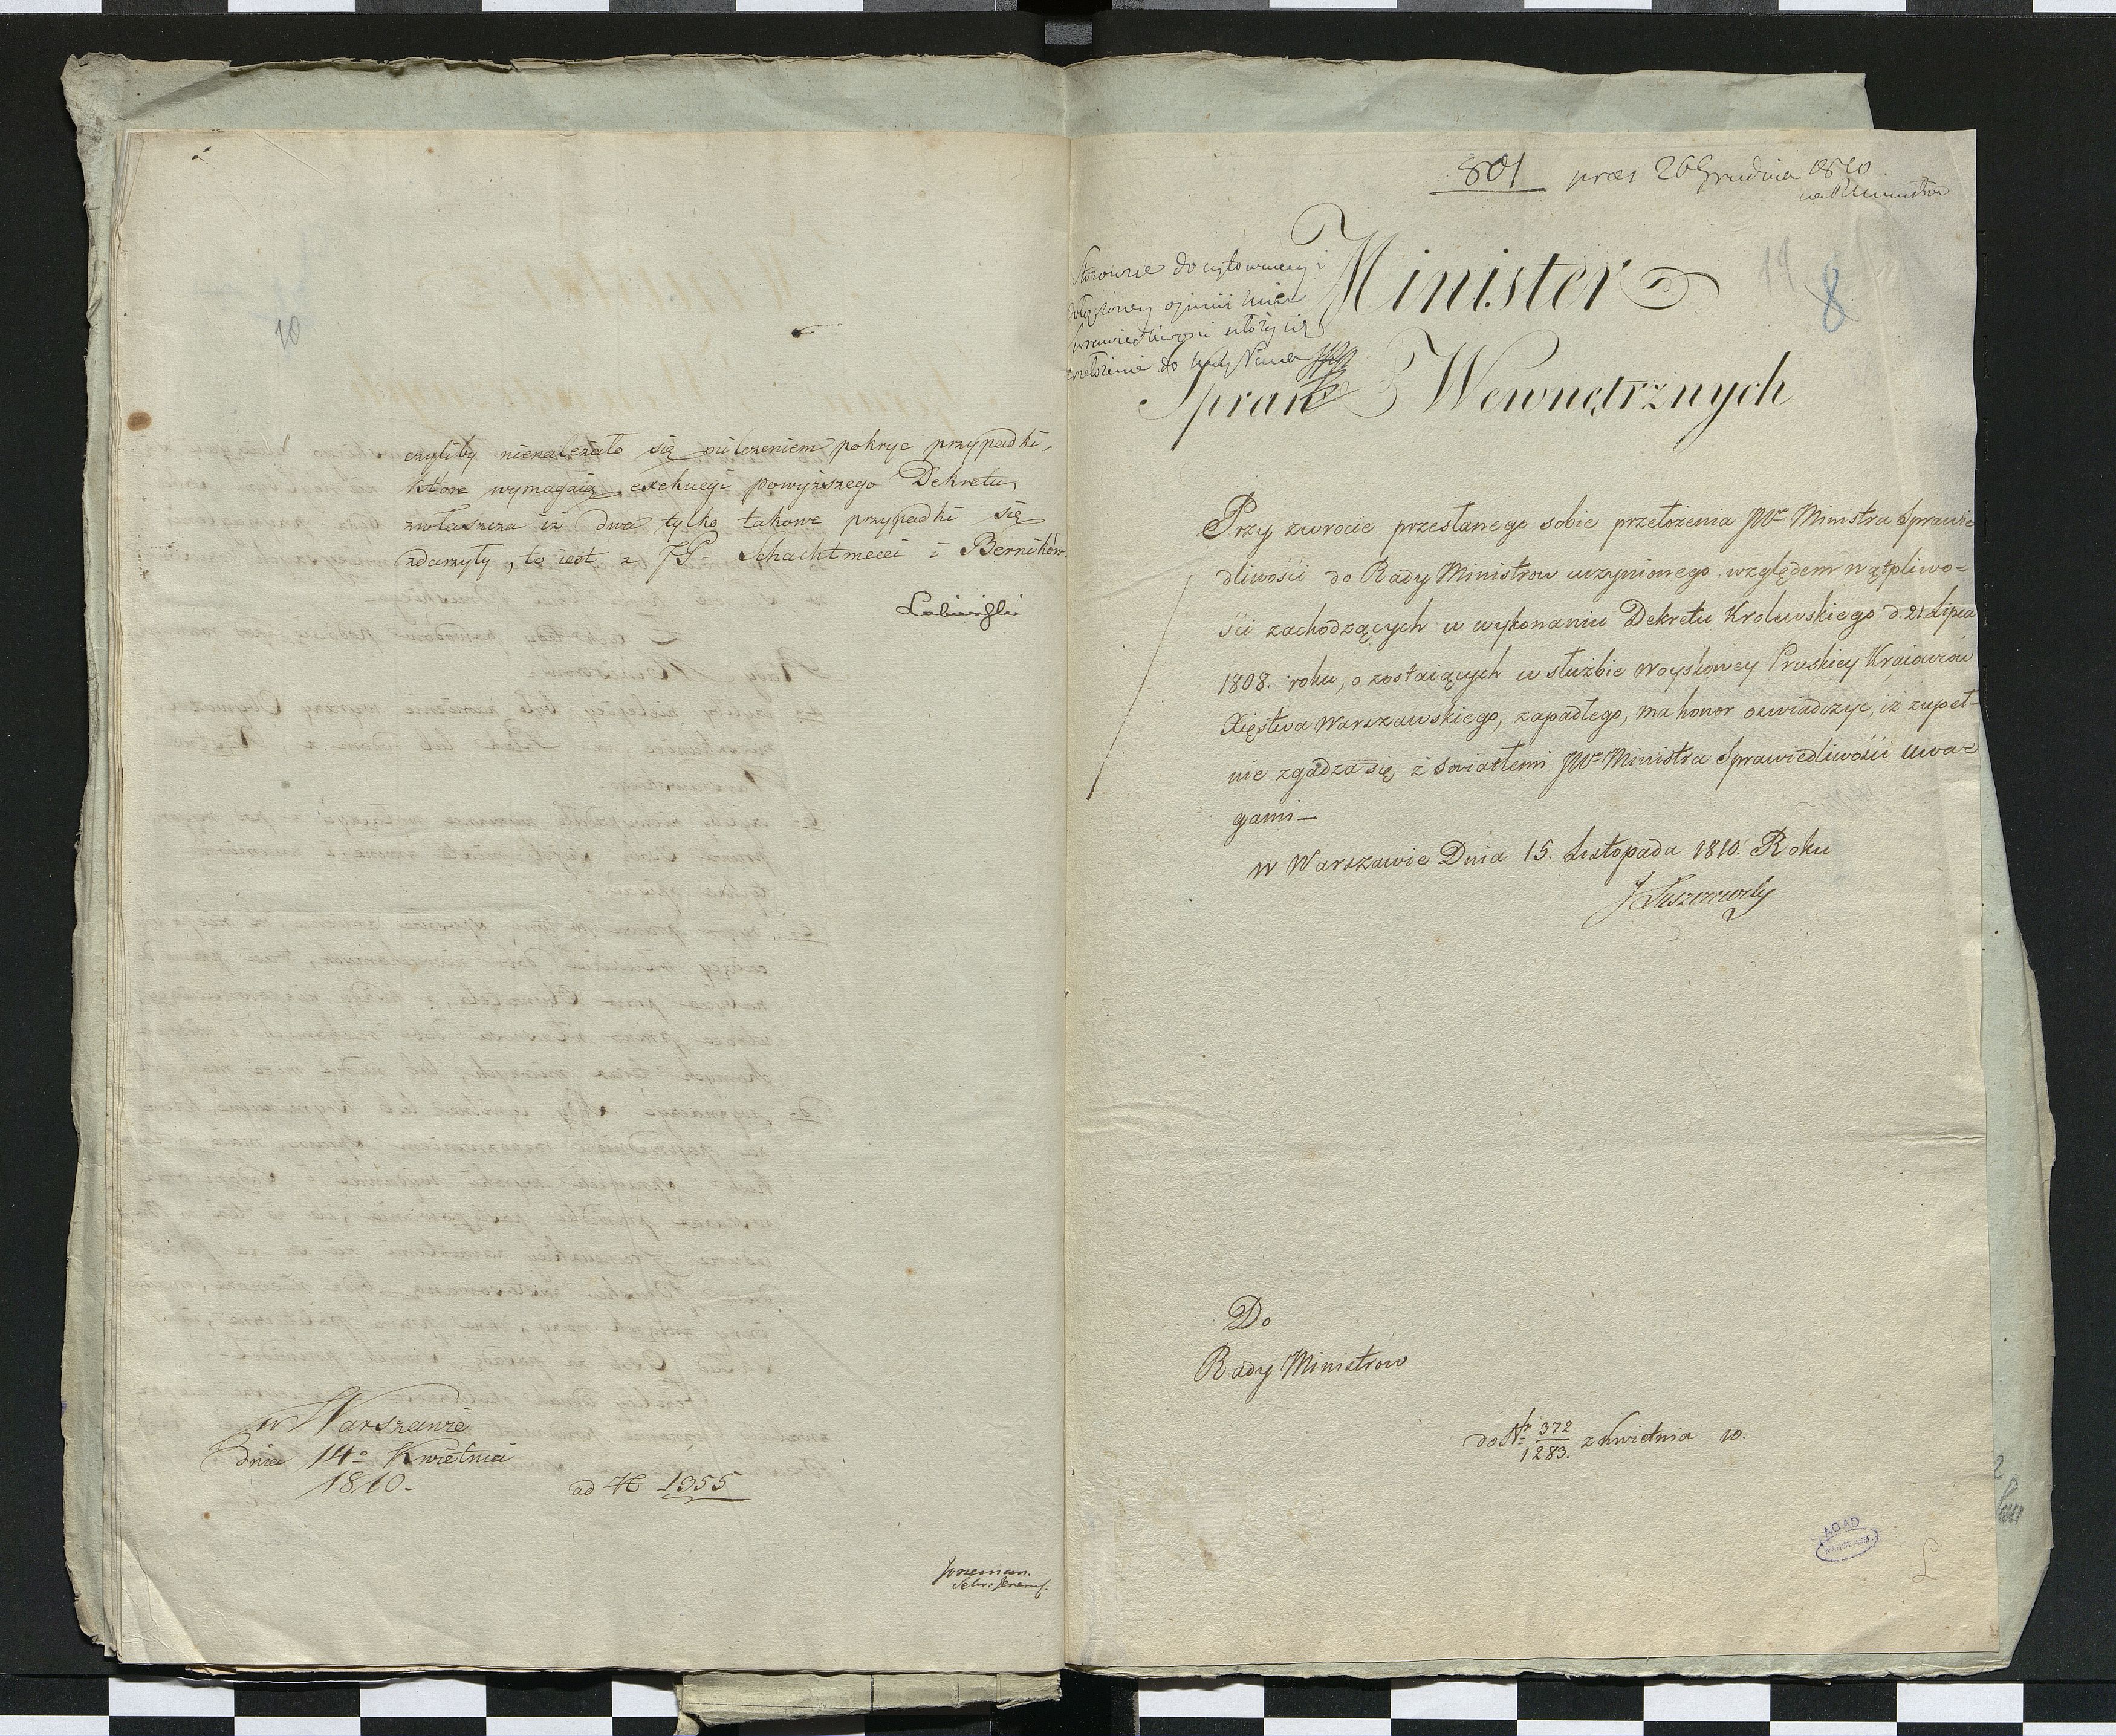 10
czyliby nienależało się milczeniem pokryc przypadki,
ktore wymagaią exekucyi powyższego Dekretu,
zwłaszcza iż dwa tylko takowe przypadki się
zdarzyły, to iest z JP. Schachtmecei i Berników.
Lubieński
w Warszawie
dnia 14o Kwietnia
1810.
ad N 1355
Sekr: Jeneral.
801 præs 26 Grudnia 1810
Stosownie do cytowaney i
opinii Min
ułoży się
przełożenie do Nay. Pana
Minister
11
8
Spraw Wewnętrznych
Przy zwrocie przesłanego sobie przełożenia JWo Ministra Sprawie
dliwości do Rady Ministrow uczynionego względem wątpliwo=
ści zachodzących w wykonaniu Dekretu Krolewskiego d. 21 Lipca
1808. roku, o zostaiących w służbie woyskowey Pruskiey Kraiowców
Xięstwa Warszawskiego, zapadłego, ma honor oswiadczyc, iż zupeł=
nie zgadza się z swiatłemi JWo Ministra Sprawiedliwości Uwa=
gami—
w Warszawie Dnia 15. Listopada 1810. Roku
J Łuszczewski
Do
Rady Ministrow
do Nr 372/1283. z Kwietnia 10.
AGAD
WARSZAWA